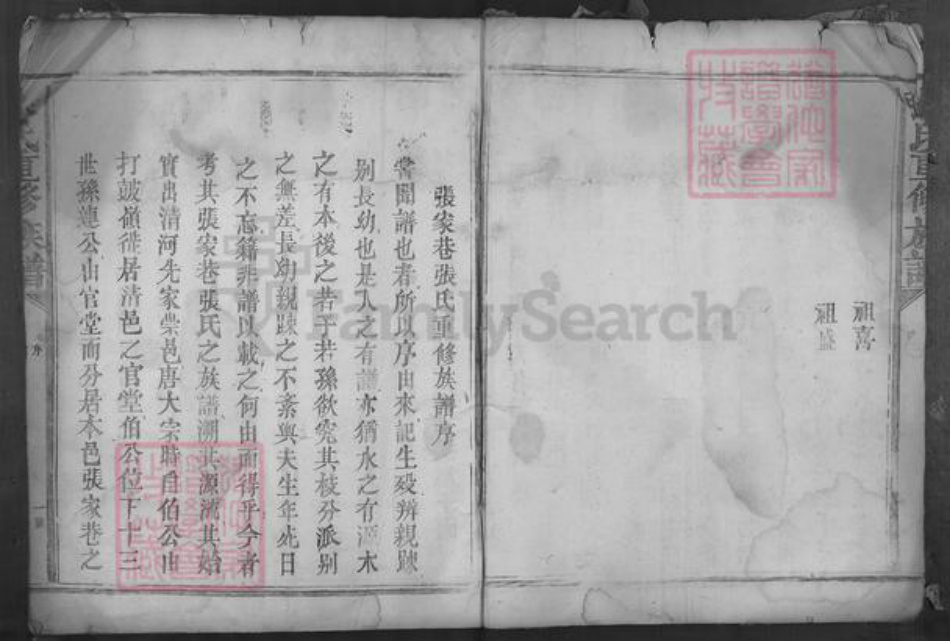 祖喜
祖盛
張家巷張氏重修族譜序
嘗聞譜也者所以序由來記生歿辨親踈
别長幼也是人之有譜亦猶水之有源木
之有本後之若子若孫欲究其枝分派别
之無差長幼親踈之不紊與夫生年歿日
之不忘籍非譜以載之何由而得乎今者
考其張家巷張氏之族譜溯其源流其始
實出清河先家崇邑唐大宗時自伯公由
打鼓嶺徙居清邑之官堂伯公位下十三
世孫連公由官堂而分居本邑張家巷之
氏重修族譜
序
FamilySearch